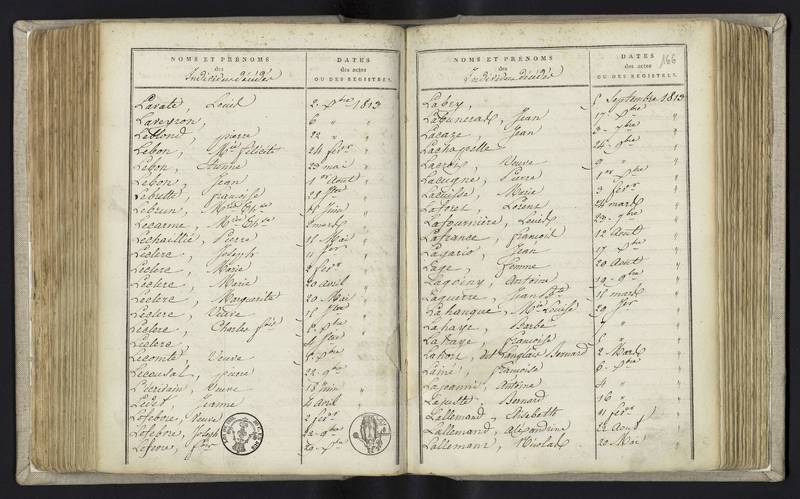 NOMS ET PRÉNOMS
des
Individus décédés
DATES
des actes
OU DES REGISTRES.
Lavate, Louis 2 Xbre 1813
Laveyron, 6 " "
Leblond, pierre 22 " "
Lebon, Mie félicité 24 févr "
Lebon, Etienne 23 mai "
Lebon, Jean 1er Aout "
Lebrette, françoise
Lebrun, Mie 15 Juin "
Lecarme, Mie 2 mars "
Lechaillié, Pierre 15 Mai "
Leclere, Joseph 11 "
Leclere, Marie 2 févr "
Leclere, Marie 20 avril "
Leclere, Marguerite 20 Mai "
Leclere, Veuve
Leclere, Charles
Leclere,
Lecomte, Veuve
Lecusal, pierre 22 9bre
L'écrivain, Veuve 18 Juin "
Leduf, Jeanne 4 avril "
Lefebvre, Veuve 2 févr "
Lefebvre, Joseph 22 9bre "
Lefevre, 20 "
NOMS ET PRÉNOMS
des
Individus décédés
DATES
des actes
OU DES REGISTRES.
166
Labry, 5 Septembre 1813
Labuneras, Jean 17 Xbre "
Lacaze, Jean 3 7bre "
Lachapelle 24 9bre "
Lacroix, Veuve 9 " "
Lacugne, Pierre 1er Xbre "
Lacuisse, Marie 3 févr "
Laforet, Lorent 24 mars "
Lafournière, Louis 23 9bre "
Lafrance, françois 12 Aout "
Lagario, Jean 17 Xbre "
Lage, femme 20 Aout "
Lagoiny, Antoine 19 9bre "
Laguerre, Jean Bte 15 mars "
Lahangue, Mie Louise 20 févr "
Lahaye, Barbe 7 " "
Lahaye, françoise 8 " "
Lahore, dit Langlais Bernard 2 Mars "
Lainé, françoise 6 Xbre "
Lajeanni, Antoine 4 " "
Lajuste, Bernard 16 " "
Lallemand, Elisabeth 11 févr "
Lallemand, Alexandrine 22 Aout "
Lallemant, Nicolas 20 Mai "